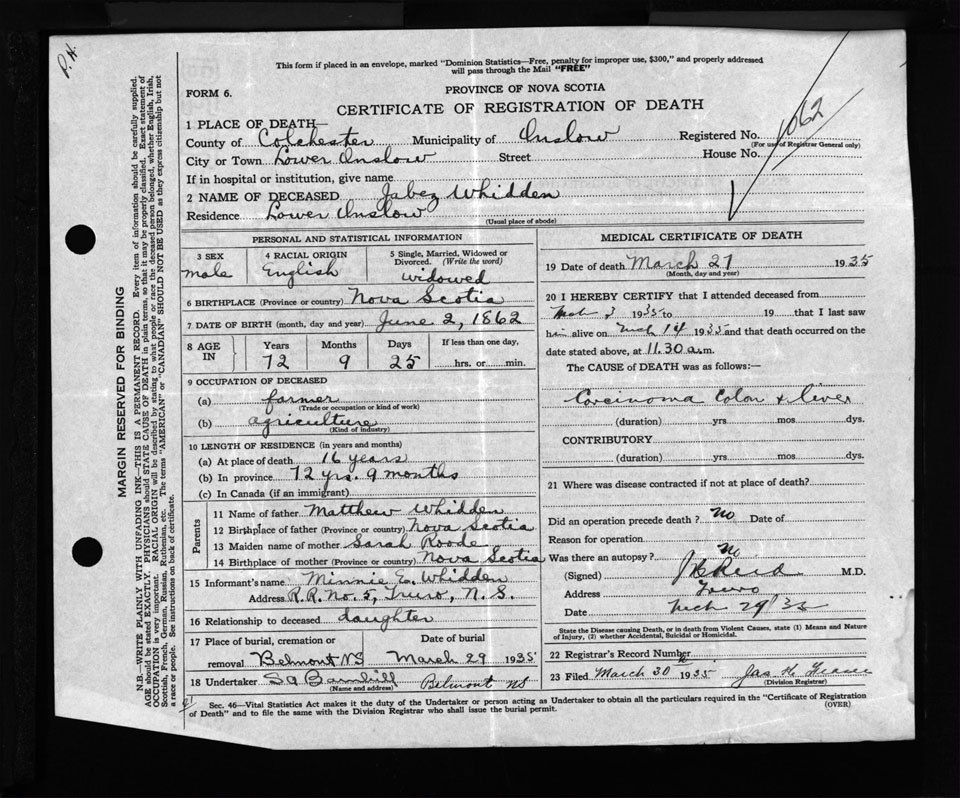 P.H.
This form if placed in an envelope, marked "Dominion Statistics—Free, penalty for improper use, $300," and properly addressed
will pass through the Mail "FREE"
PROVINCE OF NOVA SCOTIA
FORM 6.
CERTIFICATE OF REGISTRATION OF DEATH
1 PLACE OF DEATH—
County of Colchester Municipality of Onslow Registered No. 1062
(For use of Registrar General only)
City or Town Lower Onslow Street House No.
If in hospital or institution, give name
2 NAME OF DECEASED Jabez Whidden
Residence Lower Onslow
(Usual place of abode)
PERSONAL AND STATISTICAL INFORMATION
3 SEX 4 RACIAL ORIGIN 5 Single, Married, Widowed or
Divorced. (Write the word)
male English widowed
6 BIRTHPLACE (Province or country) Nova Scotia
7 DATE OF BIRTH (month, day and year) June 2, 1862
8 AGE IN Years Months Days If less than one day,
72 9 25 hrs. or min.
9 OCCUPATION OF DECEASED
(a) farmer
(Trade or occupation or kind of work)
(b) agriculture
(Kind of industry)
10 LENGTH OF RESIDENCE (in years and months)
(a) At place of death 16 years
(b) In province 72 yrs. 9 months
(c) In Canada (if an immigrant)
Parents
11 Name of father Matthew Whidden
12 Birthplace of father (Province or country) Nova Scotia
13 Maiden name of mother Sarah Roode
14 Birthplace of mother (Province or country) Nova Scotia
15 Informant's name Minnie E. Whidden
Address R.R. No. 5, Truro, N.S.
16 Relationship to deceased daughter
17 Place of burial, cremation or Date of burial
removal Belmont NS March 29 1935
18 Undertaker Belmont NS
(Name and address)
MEDICAL CERTIFICATE OF DEATH
19 Date of death March 27 1935
(Month, day and year)
20 I HEREBY CERTIFY that I attended deceased from
Mch 3 1935 to 19 that I last saw
him alive on Mch 14 1935 and that death occurred on the
date stated above, at 11.30 a.m.
The CAUSE of DEATH was as follows:—
Carcinoma Colon & Liver
(duration) yrs mos dys.
CONTRIBUTORY
(duration) yrs mos dys.
21 Where was disease contracted if not at place of death?
Did an operation precede death? No Date of
Reason for operation
Was there an autopsy? No
(Signed) Reid M.D.
Address Truro
Date Mch 29 35
State the Disease causing Death, or in death from Violent Causes, state (1) Means and Nature
of Injury, (2) whether Accidental, Suicidal or Homicidal.
22 Registrar's Record Number
23 Filed March 30 1935
(Division Registrar)
Sec. 46—Vital Statistics Act makes it the duty of the Undertaker or person acting as Undertaker to obtain all the particulars required in the "Certificate of Registration
of Death" and to file the same with the Division Registrar who shall issue the burial permit.
(OVER)
MARGIN RESERVED FOR BINDING
N.B.—WRITE PLAINLY WITH UNFADING INK—THIS IS A PERMANENT RECORD. Every item of information should be carefully supplied.
AGE should be stated EXACTLY. PHYSICIANS should STATE CAUSE OF DEATH in plain terms, so that it may be properly classified. Exact statement of
OCCUPATION is very important. RACIAL ORIGIN will be described by stating to what people or race the deceased person belonged, whether English, Irish,
Scottish, French, German, Russian, Ruthenian, etc. The terms "AMERICAN" or "CANADIAN" SHOULD NOT BE USED as they express citizenship but not
a race or people. See instructions on back of certificate.